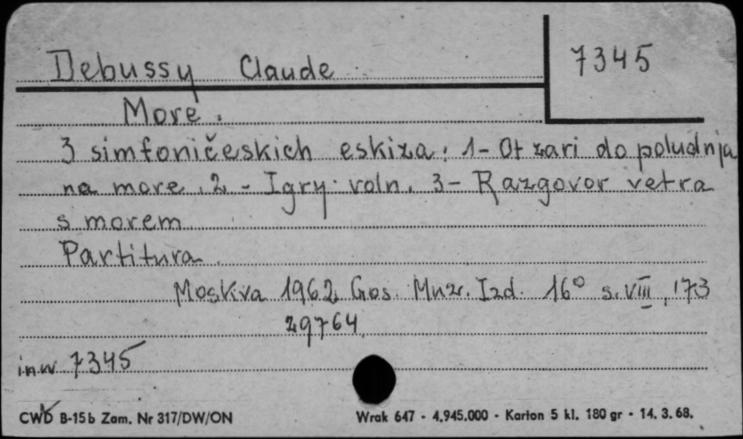 Debussy Claude 7345
More.
3 simfoničeskich eskiza: 1- Ot zari do poludnja
na more. 2 - Igry voln. 3 - Razgovor vetra
s morem
Partitura
Moskva 1962 Gos. Muz. Izd. 16° s. VIII, 173
29764
inw 7345
CWD B-15b Zam. Nr 317/DW/ON Wrak 647 - 4.945.000 - Karton 5 kl. 180 gr - 14. 3. 68.